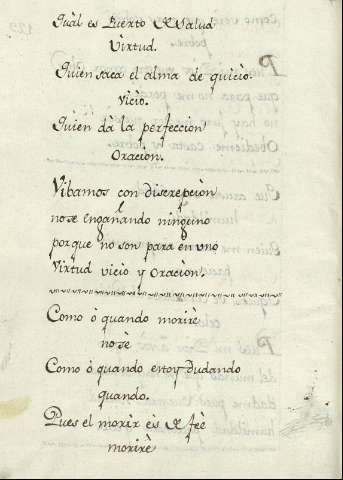 Qual es Puerto de Salud
Virtud.
Quien saca el alma de quicio
vicio.
Quien dà la perfeccion
Oracion.
Vibamos con discrepcion
no se engañando ninguno
porque no son para en uno
Virtud vicio y Oracion.
Como ò quando morirè
no sè
Como ò quando estoy dudando
quando.
Pues el morir es de feè
morirè